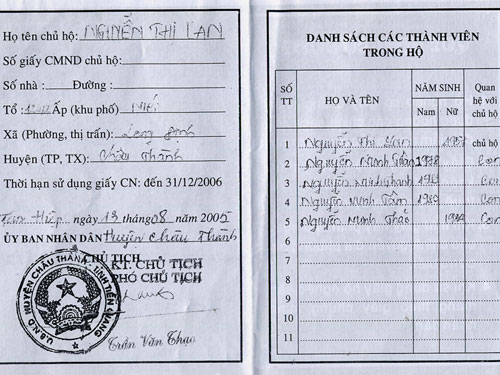 Họ tên chủ hộ: NGUYỄN THỊ LAN
Số giấy CMND chủ hộ:
Số nhà : Đường :
Tổ : Ấp (khu phố) Nhất
Xã (Phường, thị trấn): Long Định
Huyện (TP, TX): Châu Thành
Thời hạn sử dụng giấy CN: đến 31/12/2006
Tân Hiệp, ngày 13 tháng 08 năm 2005
ỦY BAN NHÂN DÂN Huyện Châu Thành
CHỦ TỊCH
KT. CHỦ TỊCH
PHÓ CHỦ TỊCH
U.B.N.D HUYỆN CHÂU THÀNH - TỈNH TIỀN GIANG
Trần Văn Thạo
DANH SÁCH CÁC THÀNH VIÊN
TRONG HỘ
SỐ TT HỌ VÀ TÊN NĂM SINH Quan hệ với chủ hộ
Nam Nữ
1 Nguyễn Thị
2 Nguyễn Minh 1978 Con
3 Nguyễn Con
4 Nguyễn Minh Tâm 1980 Con
5 Nguyễn Minh Thảo Con
6
7
8
9
10
11